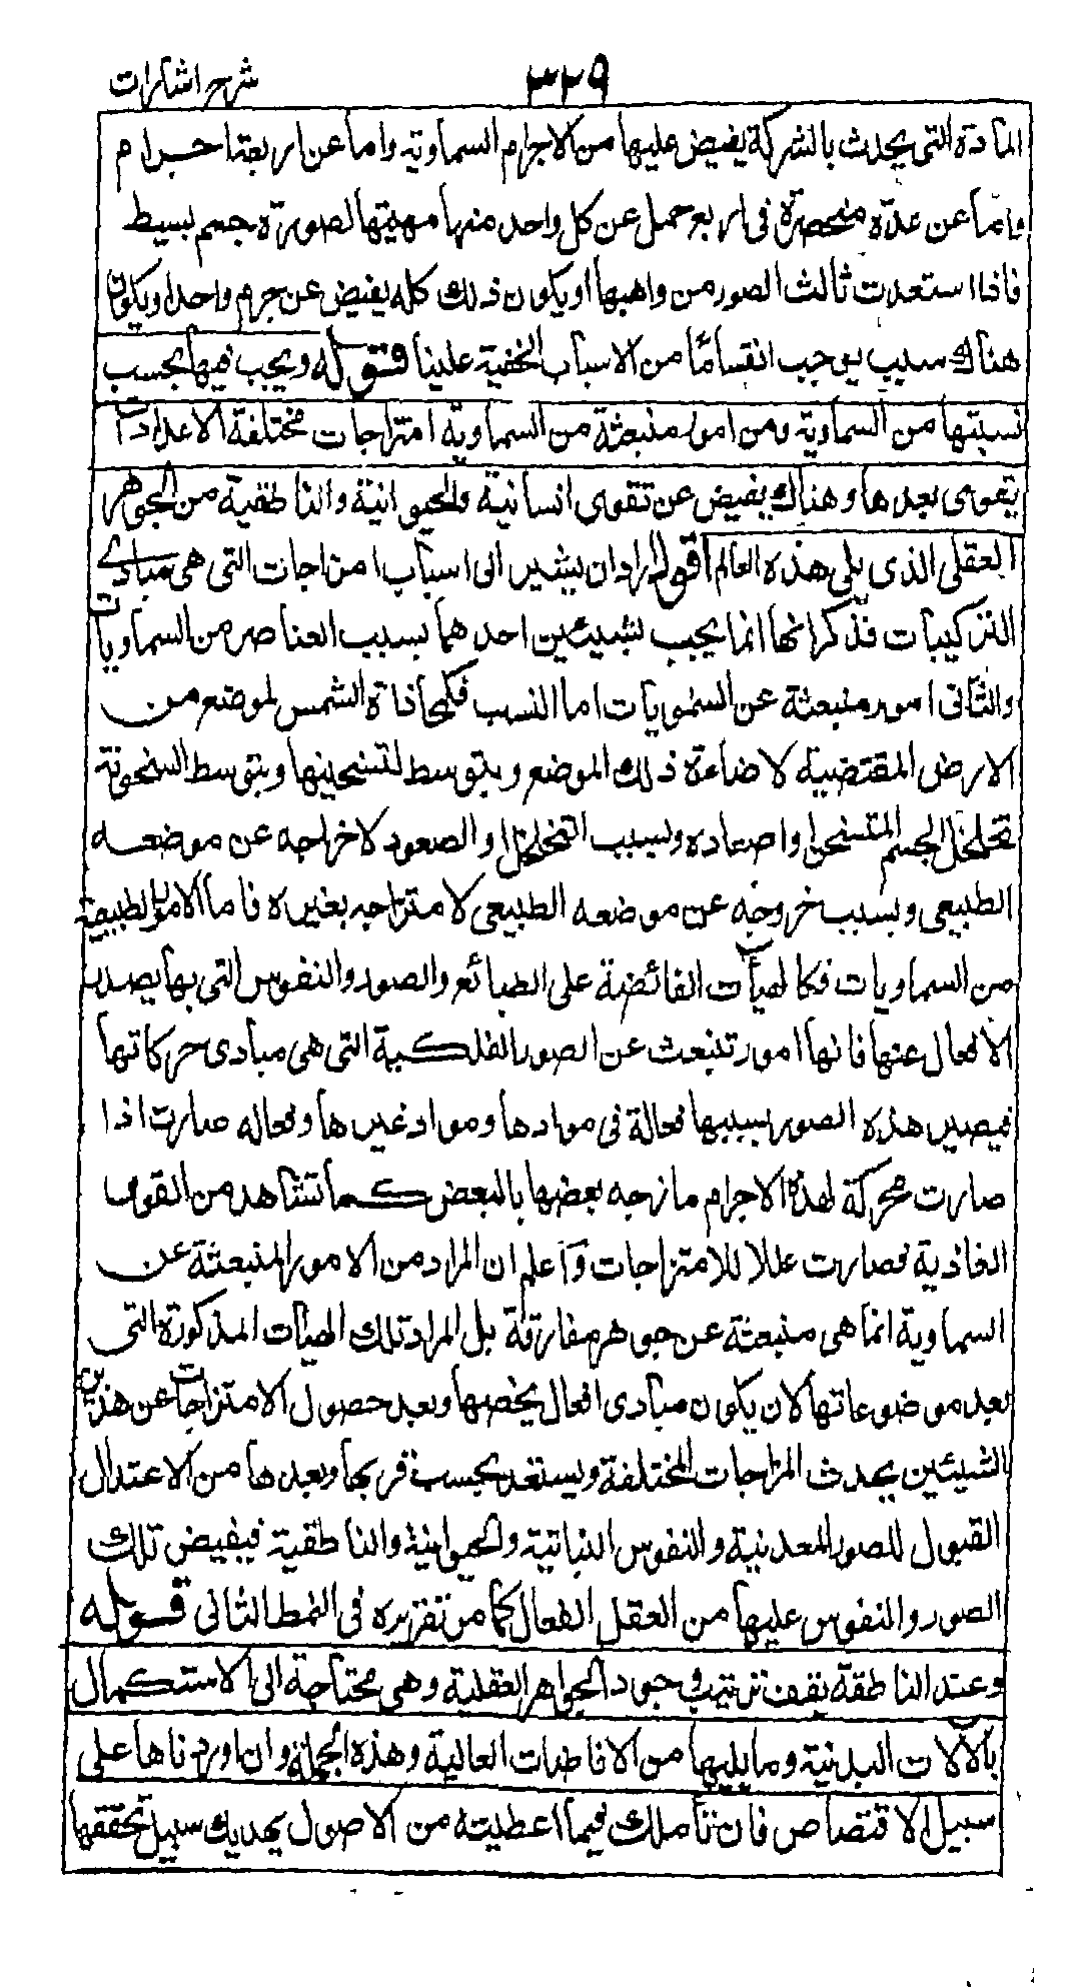 شرح اشارات
٣٢٩
المادة التى يحدث بالشركة يفيض عليها من الاجرام السماوية واما عن اربعة اجرام
واما عن عدة منحصرة فى اربع جمل عن كل واحد منها مهيتها لصورة جسم بسيط
فاذا استعدت ثالث الصور من واهبها او يكون ذلك كله يفيض عن جرم واحد او يكون
هناك سبب يوجب انقساما من الاسباب الخفية علينا قوله ويجب فيها بحسب
نسبتها من السماوية ومن امور منبعثة من السماوية امتزاجات مختلفة الاعدادات
يتقوى بعدها وهناك يفيض عن تقوى انسانية والحيوانية والناطقية من الجوهر
العقلى الذى يلى هذه العالم اقول اراد ان يشير الى اسباب امزاجات التى هى مبادى
التركيبات فذكر انها انما يجب بشيئين احدهما بسبب العناصر من السماويات
والثانى امور منبعثة عن السمويات اما النسب فكمحاذاة الشمس لموضع من
الارض المقتضية لاضاءة ذلك الموضع وبتوسط لتسخينها وبتوسط السخونة
تخلخل الجسم المتسخن او اصعاده وبسبب التخلخل او الصعود لاخراجه عن موضعه
الطبيعى وبسبب خروجه عن موضعه الطبيعى لامتزاجه بغيره فاما الامور الطبيعية
من السماويات فكالهيأت الفائضة على الطبائع والصور والنفوس التى بها يصدر
الافعال عنها فانها امور تنبعث عن الصور الفلكية التى هى مبادى حركاتها
فيصير هذه الصور بسببها فعالة فى موادها ومواد غيرها وفعاله صارت اذا
صارت محركة لهذه الاجرام مازجه بعضها بالبعض كما تشاهد من القوى
الغاذية فصارت عللا للامتزاجات واعلم ان المراد من الامور المنبعثة عن
السماوية انما هى منبعثة عن جوهر مفارقة بل المراد تلك الهيأت المذكورة التى
بعد موضوعاتها لان يكون مبادى افعال يخصها وبعد حصول الامتزاجات عن هذين
الشيئين يحدث المزاجات المختلفة ويستعد بحسب قربها وبعدها من الاعتدال
القبول للصور المعدنية والنفوس النباتية والحيوانية والناطقية فيفيض تلك
الصور والنفوس عليها من العقل الفعال كما مر تقريره فى النمط الثانى قوله
وعند الناطقة يقف ترتيب وجود الجواهر العقلية وهى محتاجة الى الاستكمال
بالآلات البدنية وما يليها من الافاضات العالية وهذه الجملة وان اوردناها على
سبيل الاقتصاص فان تأملك فيما اعطيته من الاصول يهديك سبيل تحققها